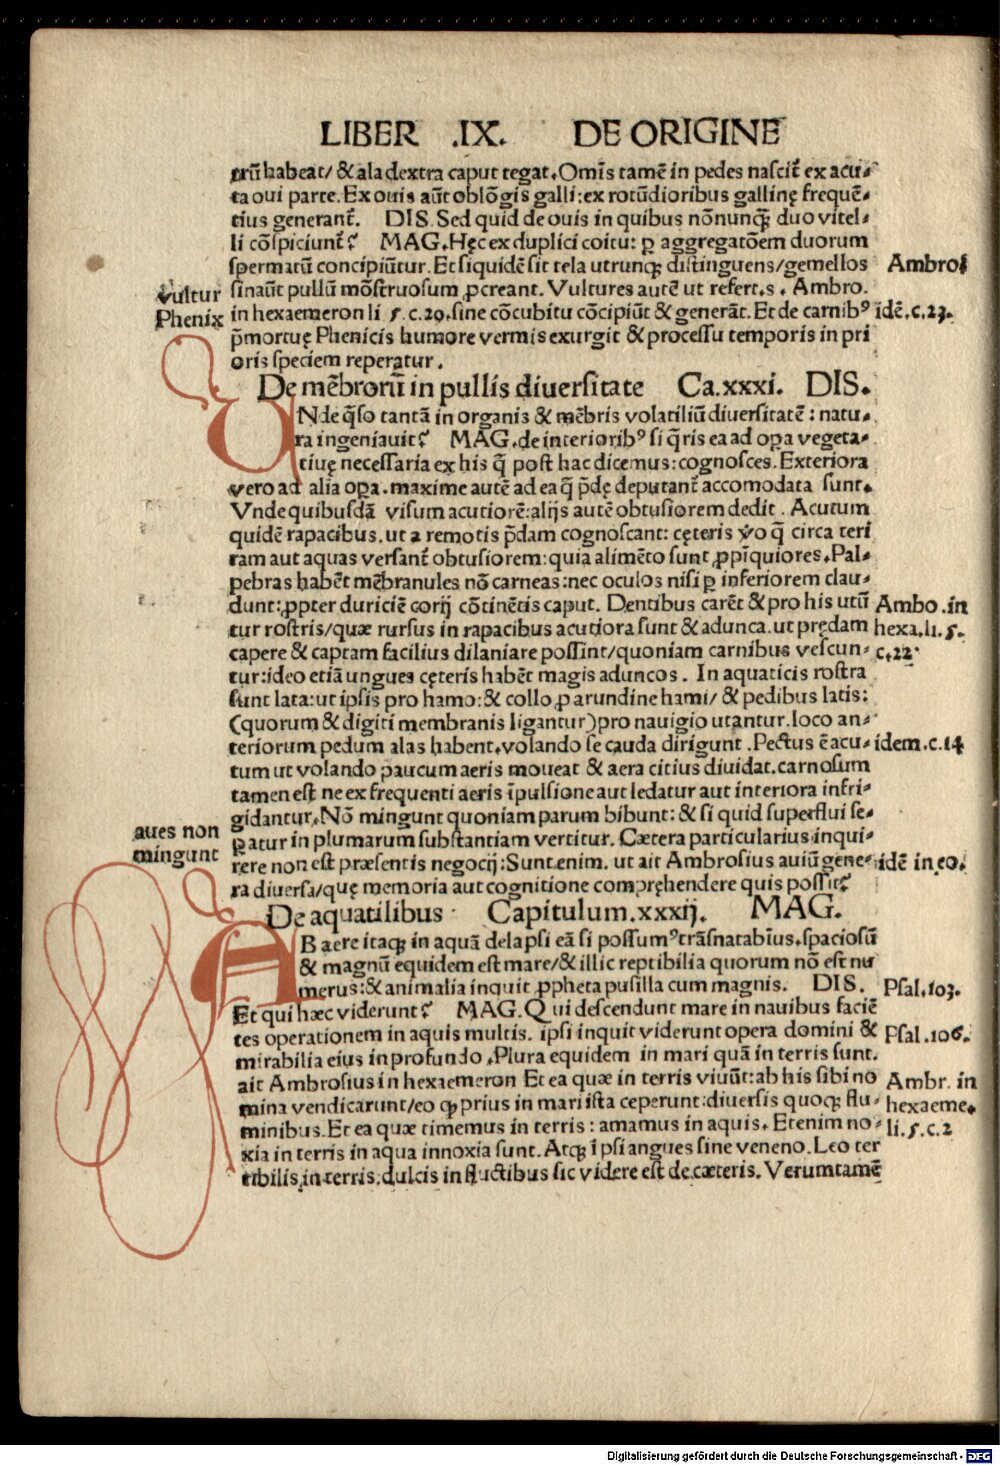 LIBER .IX. DE ORIGINE
trū habeat/ & ala dextra caput tegat. Omīs tamē in pedes nascit̄ ex acu⸗
ta oui parte. Ex ouis aūt oblōgis galli: ex rotūdioribus gallinę frequē⸗
tius generant̄. DIS. Sed quid de ouis in quibus nōnunqȝ duo vitel⸗
li cōspiciunt̄? MAG. Hęc ex duplici coitu: ꝑ aggregatōem duorum
spermatū concipiūtur. Et siquidē sit tela utrunqȝ distinguens/gemellos
Ambros
sinaūt pullū mōstruosum ꝓcreant. Vultures autē ut refert. s. Ambro.
vultur
Phenix
in hexaemeron li 5. c. 20. sine cōcubitu cōcipiūt & generāt. Et de carnibꝰ
idē. c. 23.
p̄mortuę Phenicis humore vermis exurgit & processu temporis in pri
oris speciem reperatur.
De mēbrorū in pullis diuersitate Ca. xxxi. DIS.
VNde q̄so tantā in organis & mēbris volatiliū diuersitatē: natu⸗
ra ingeniauit? MAG. de interioribꝰ si q̄ris ea ad oꝑa vegeta⸗
tiuę necessaria ex his q̄ post hac dicemus: cognosces. Exteriora
vero ad alia oꝑa. maxime autē ad ea q̄ p̄dę deputant̄ accomodata sunt.
Vnde quibusdā visum acutiorē: alijs autē obtusiorem dedit. Acutum
quidē rapacibus. ut a remotis p̄dam cognoscant: cęteris v̄o q̄ circa teri
ram aut aquas versant̄ obtusiorem: quia alimēto sunt ꝓpīquiores. Pal⸗
pebras habēt mēbranules nō carneas: nec oculos nisi ꝑ inferiorem clau⸗
dunt: ꝓpter duriciē corij cōtinētis caput. Dentibus carēt & pro his utū
Ambo. in
tur rostris/quæ rursus in rapacibus acutiora sunt & adunca. ut prędam
hexa. li. 5.
capere & captam facilius dilaniare possint/quoniam carnibus vescun⸗
c. 22
tur: ideo etiā ungues cęteris habēt magis aduncos. In aquaticis rostra
sunt lata: ut ipsis pro hamo: & collo ꝓ arundine hami/ & pedibus latis:
(quorum & digiti membranis ligantur) pro nauigio utantur. loco an⸗
teriorum pedum alas habent. volando se cauda dirigunt. Pectus ē acu⸗
idem. c. 14
tum ut volando paucum aeris moueat & aera citius diuidat. carnosum
tamen est ne ex frequenti aeris īpulsione aut ledatur aut interiora infri⸗
gidantur. Nō mingunt quoniam parum bibunt: & si quid superflui se⸗
aues non
mingunt
ꝑatur in plumarum substantiam vertitur. Cætera particularius inqui⸗
rere non est præsentis negocij: Sunt enim. ut ait Ambrosius auiū gene⸗
idē in eo.
ra diuersa/quę memoria aut cognitione compręhendere quis possit?
De aquatilibus Capitulum. xxxij. MAG.
AB aere itaqȝ in aquā delapsi eā si possumꝰ trāsnatabīus. spaciosū
& magnū equidem est mare/& illic reptibilia quorum nō est nu
merus: & animalia inquit ꝓpheta pusilla cum magnis. DIS.
Psal. 103.
Et qui hæc viderunt? MAG. Qui descendunt mare in nauibus faciē
tes operationem in aquis multis. ipsi inquit viderunt opera domini &
Psal. 106.
mirabilia eius in profundo. Plura equidem in mari quā in terris sunt.
ait Ambrosius in hexaemeron Et ea quæ in terris viuūt: ab his sibi no
Ambr. in
mina vendicarunt/eo ꝙ prius in mari ista ceperunt: diuersis quoqȝ flu⸗
hexaeme.
minibus. Et ea quæ timemus in terris: amamus in aquis. Etenim no⸗
li. 5. c. 2
xia in terris in aqua innoxia sunt. Atqȝ īpsi angues sine veneno. Leo ter
ribilis in terris: dulcis in fluctibus sic videre est de cæteris. Verumtamē
Digitalisierung gefördert durch die Deutsche Forschungsgemeinschaft - DFG